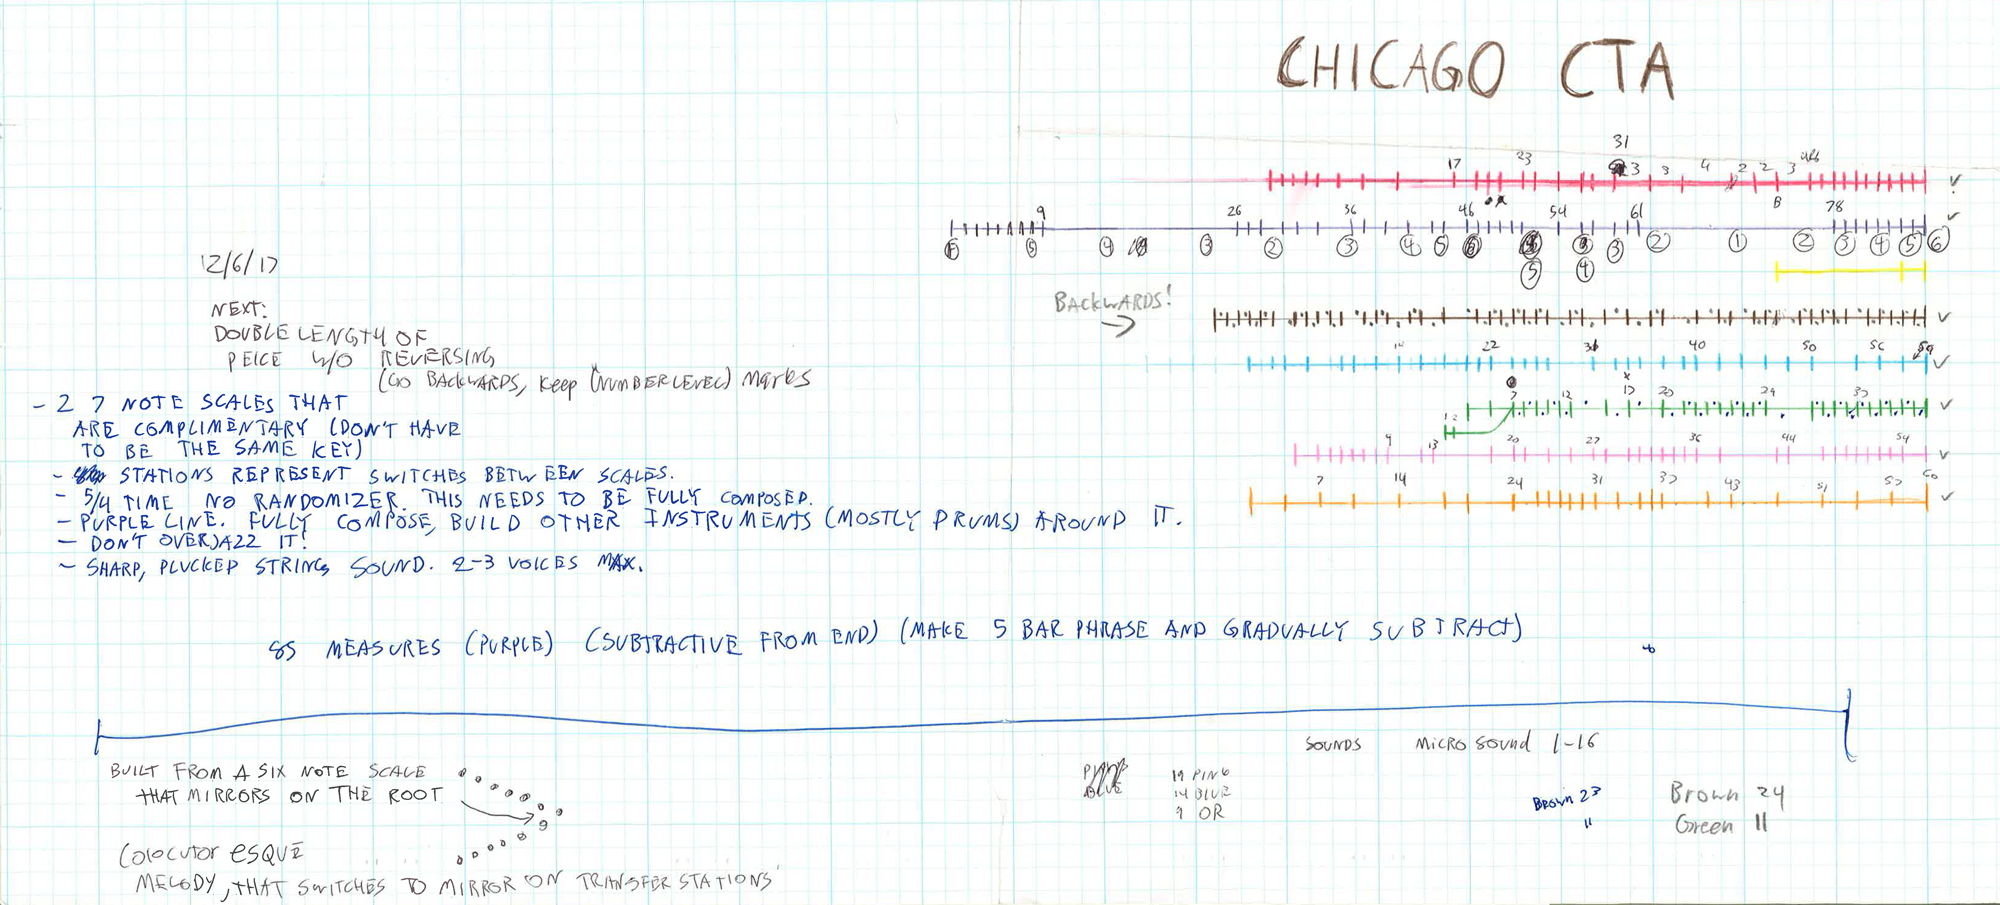 CHICAGO CTA
31
17 23 3 3 4 2 2 3
8
9 26 36 46 54 61 78
5 4 3 2 3 4 5 6 3 2 1 2 3 4 5 6
5 4
BACKWARDS!
14 22 31 40 50 56 59
7 12 17 20 24 33
1 2
9 13 20 27 36 44 54
7 14 24 31 37 43 51 57 60
12/6/17
NEXT:
DOUBLE LENGTH OF
PEICE W/O REVERSING
(GO BACKWARDS, KEEP (NUMBER LEVEL) MARKS
- 2 7 NOTE SCALES THAT
ARE COMPLIMENTARY (DON'T HAVE
TO BE THE SAME KEY)
- STATIONS REPRESENT SWITCHES BETWEEN SCALES.
- 5/4 TIME NO RANDOMIZER. THIS NEEDS TO BE FULLY COMPOSED.
- PURPLE LINE. FULLY COMPOSE, BUILD OTHER INSTRUMENTS (MOSTLY DRUMS) AROUND IT.
- DON'T OVERJAZZ IT!
- SHARP, PLUCKED STRING SOUND. 2-3 VOICES MAX.
85 MEASURES (PURPLE) (SUBTRACTIVE FROM END) (MAKE 5 BAR PHRASE AND GRADUALLY SUBTRACT)
BUILT FROM A SIX NOTE SCALE
THAT MIRRORS ON THE ROOT
COLOCUTOR ESQUE
MELODY, THAT SWITCHES TO MIRROR ON TRANSFER STATIONS
BLUE
19 PINK
14 BLUE
9 OR
SOUNDS MICRO SOUND 1-16
BROWN 23
11
Brown 24
Green 11